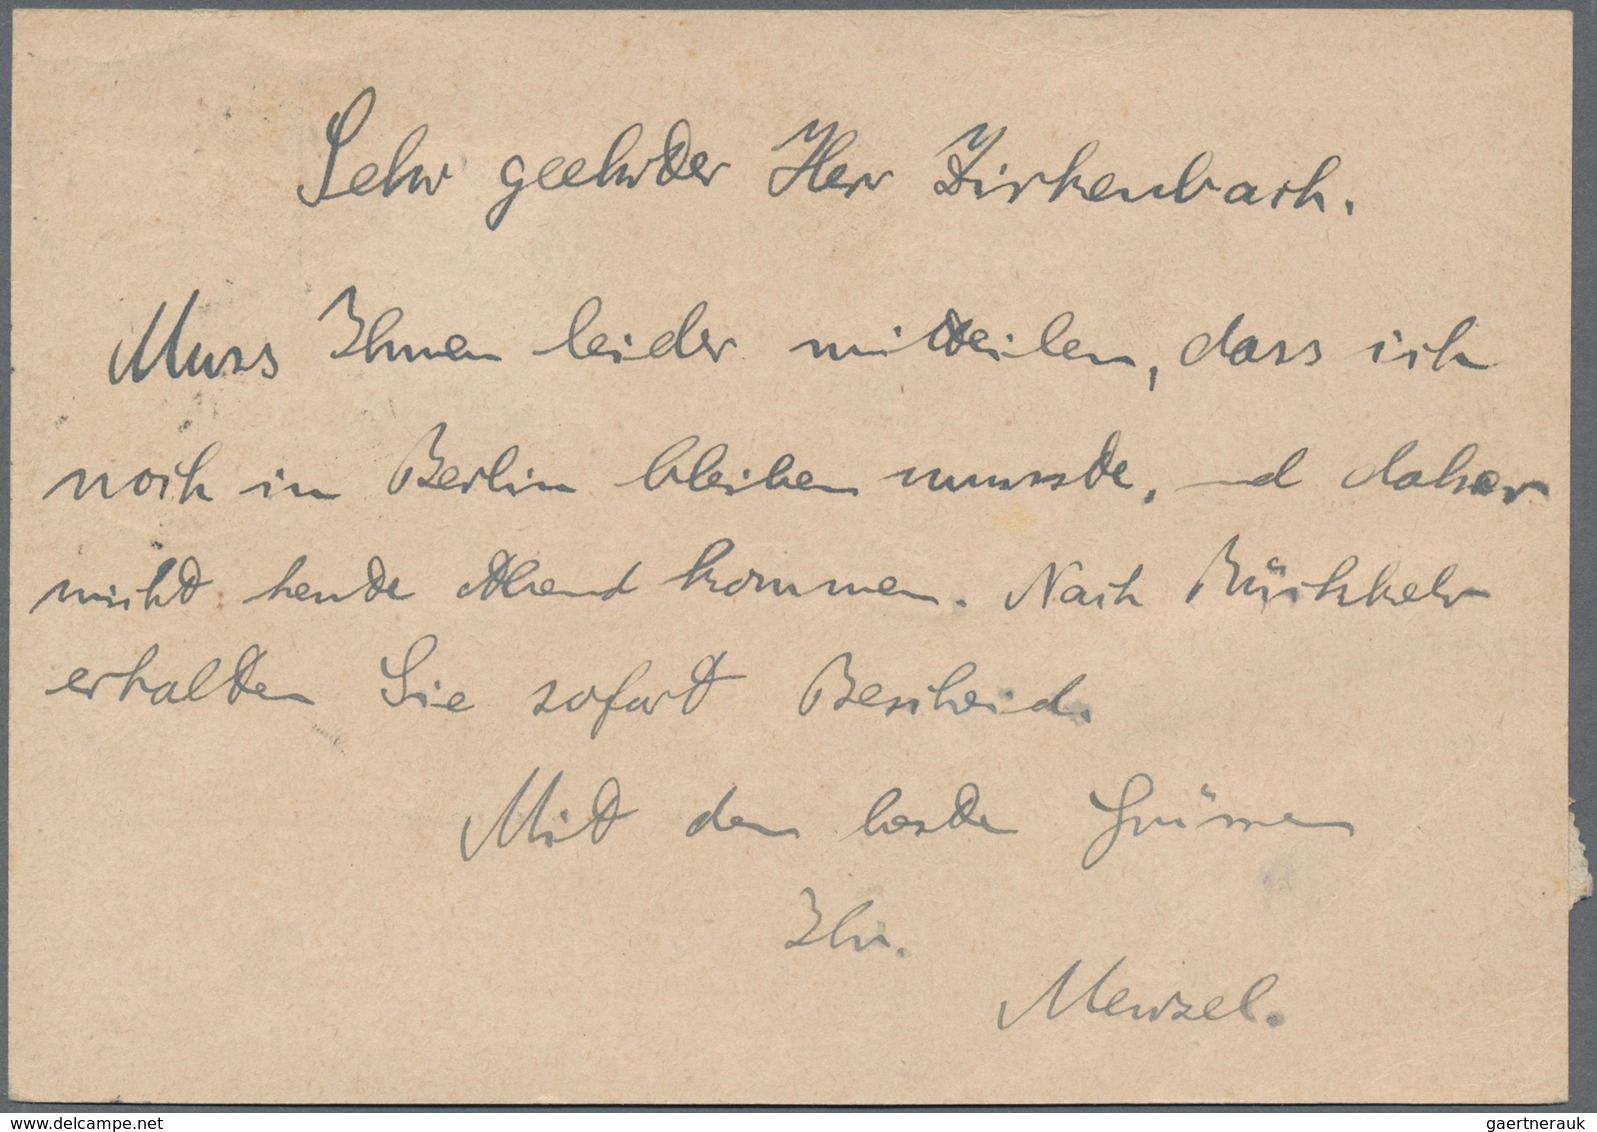 Sehr geehrter Herr Zirkenbach.
Muss Ihnen leider mitteilen, dass ich
noch in Berlin bleiben musste, und daher
nicht heute Abend kommen. Nach Rückkehr
erhalten Sie sofort Bescheid.
Mit den besten Grüssen
Ihr.
Menzel.
delcampe.net
gaertnerauk